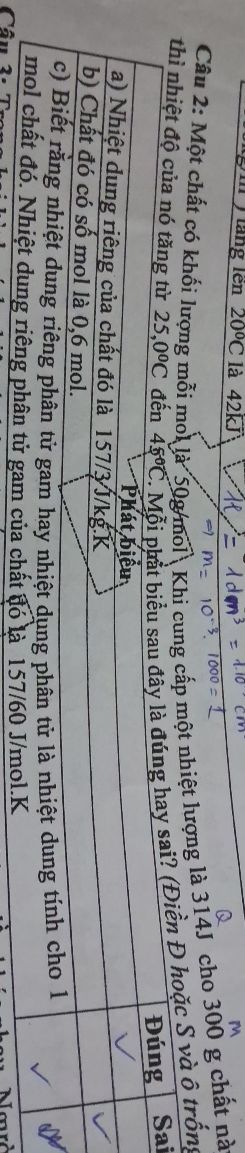 tăng lên 20⁰C là 42kJ
1l = 1dm³ = 1.10 cm
⇒ m = 10⁻³. 1000 = 1
Q m
Câu 2: Một chất có khối lượng mỗi mol là 50g/mol. Khi cung cấp một nhiệt lượng là 314J cho 300 g chất nà
thì nhiệt độ của nó tăng từ 25,0⁰C đến 45⁰C. Mỗi phát biểu sau đây là đúng hay sai? (Điền Đ hoặc S và ô trống
Phát biểu Đúng Sai
a) Nhiệt dung riêng của chất đó là 157/3 J/kg.K ✓
b) Chất đó có số mol là 0,6 mol. ✓
c) Biết rằng nhiệt dung riêng phân tử gam hay nhiệt dung phân tử là nhiệt dung tính cho 1
mol chất đó. Nhiệt dung riêng phân tử gam của chất đó là 157/60 J/mol.K ✓
Câu 3: